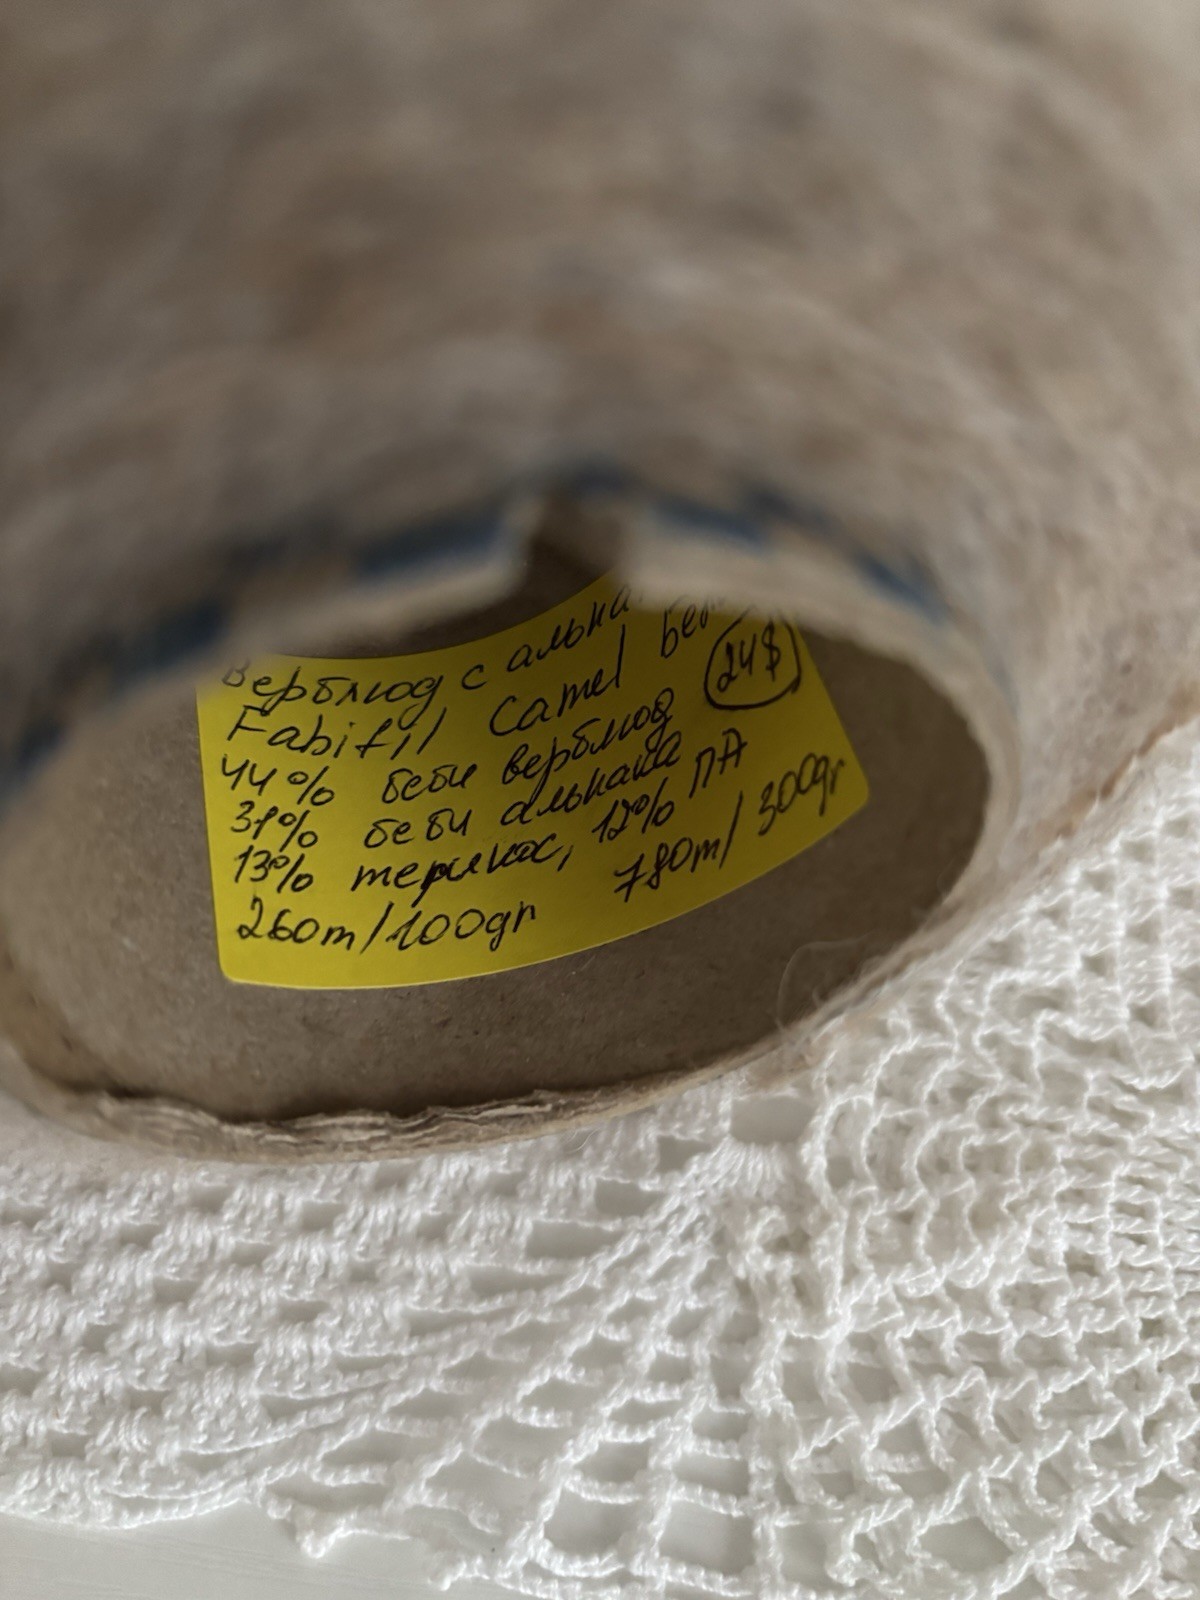 Верблюд с альпа
Fabifil Camel беж
24$
44% беби верблюд
31% беби альпака
13% меринос, 12% ПА
260m/100gr 780m/300gr